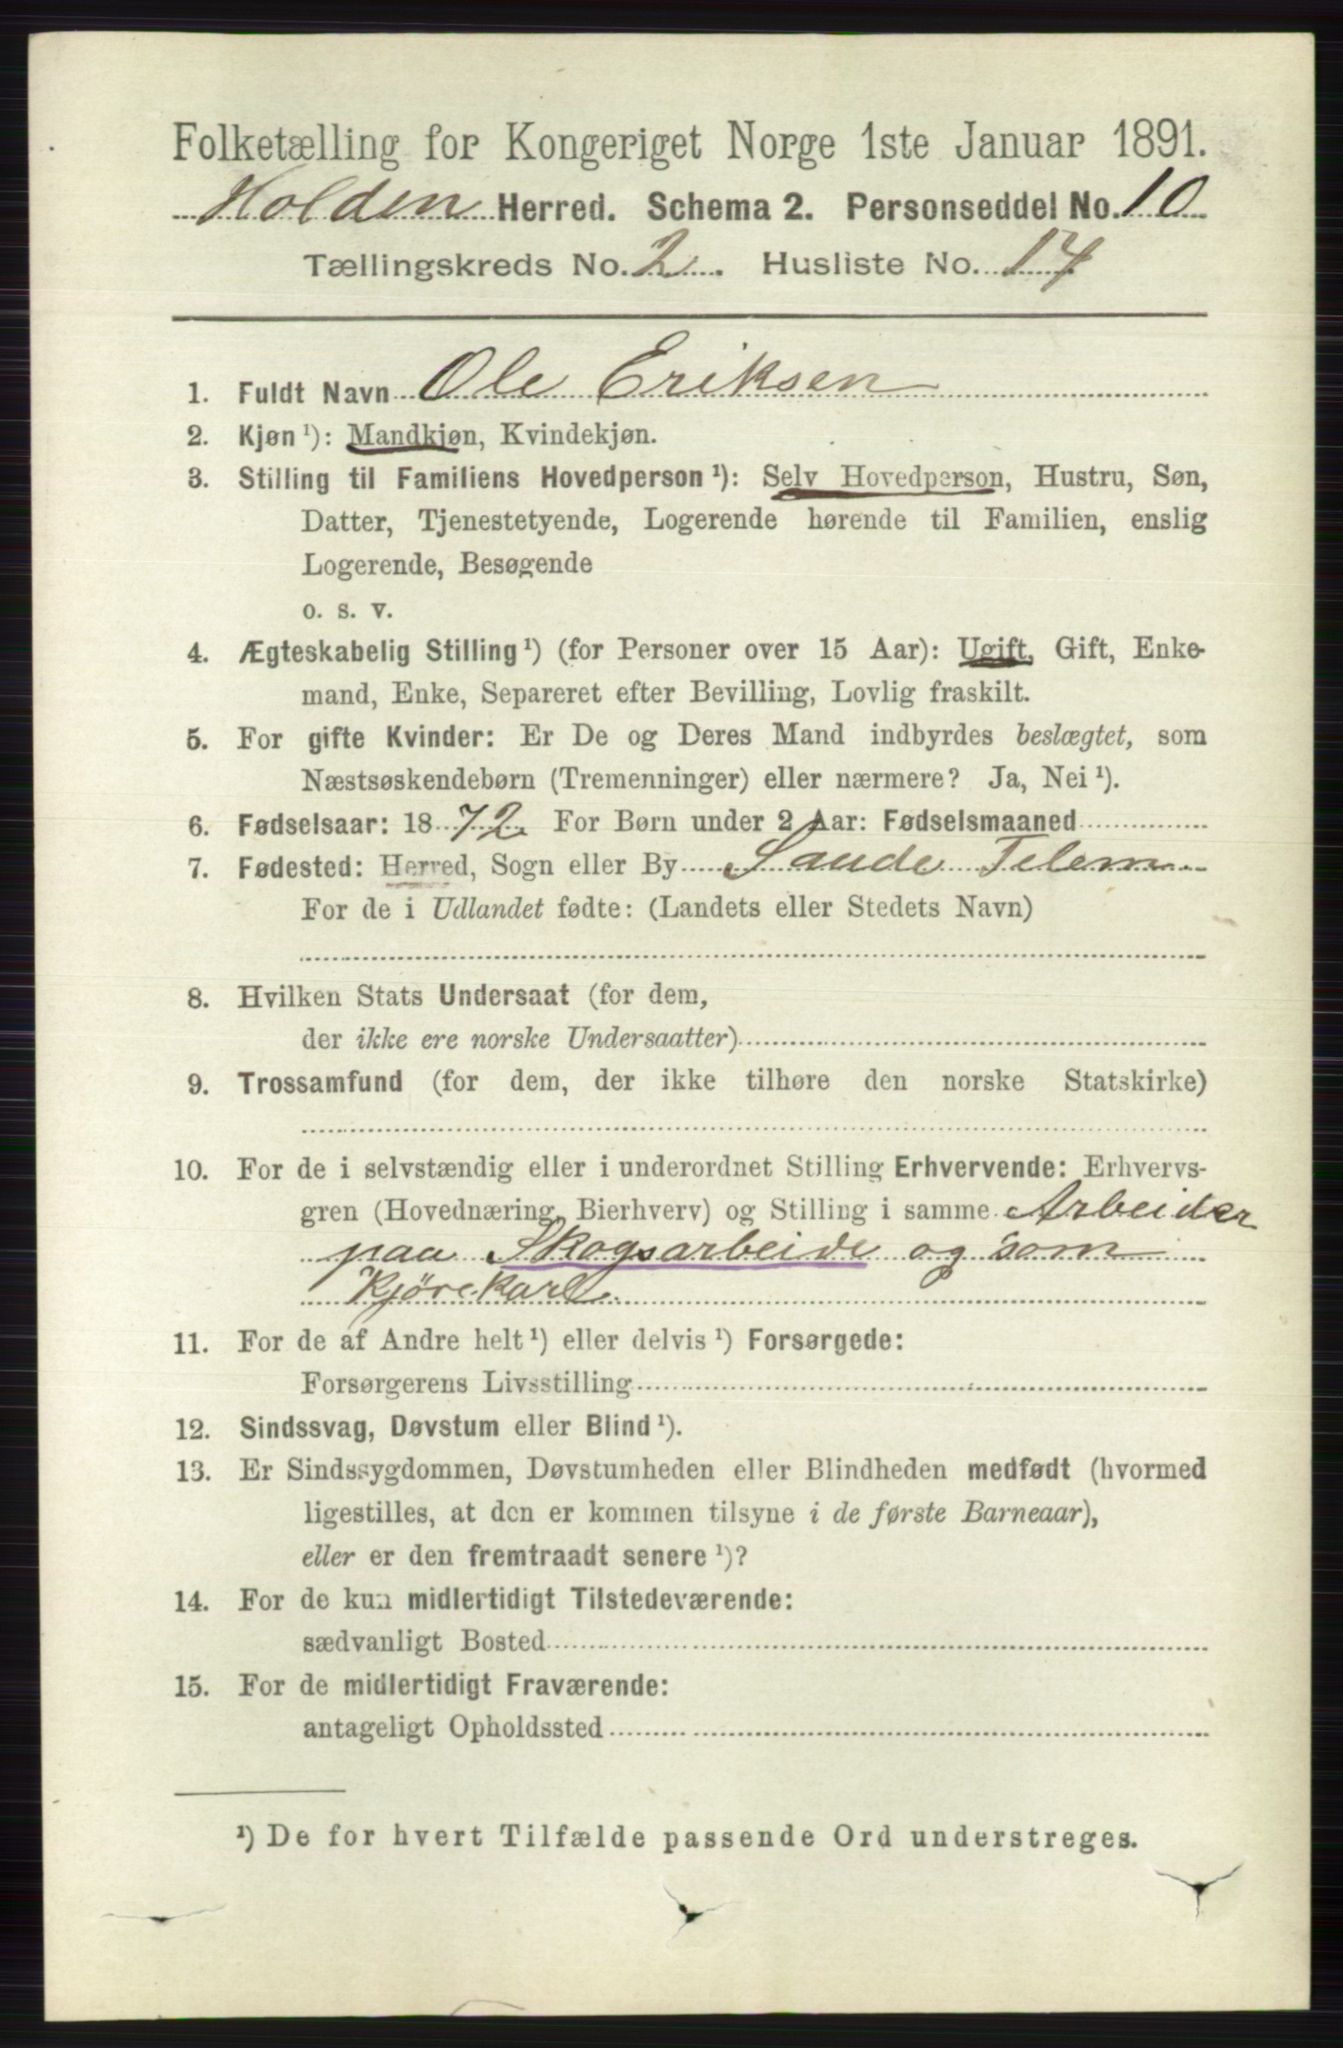 Folketælling for Kongeriget Norge 1ste Januar 1891.
Holden Herred. Schema 2. Personseddel No. 10
Tællingskreds No. 2. Husliste No. 14
1. Fuldt Navn Ole Eriksen
2. Kjøn ¹): Mandkjøn, Kvindekjøn.
3. Stilling til Familiens Hovedperson ¹): Selv Hovedperson, Hustru, Søn,
Datter, Tjenestetyende, Logerende hørende til Familien, enslig
Logerende, Besøgende
o. s. v.
4. Ægteskabelig Stilling ¹) (for Personer over 15 Aar): Ugift, Gift, Enke-
mand, Enke, Separeret efter Bevilling, Lovlig fraskilt.
5. For gifte Kvinder: Er De og Deres Mand indbyrdes beslægtet, som
Næstsøskendebørn (Tremenninger) eller nærmere? Ja, Nei ¹).
6. Fødselsaar: 1872. For Børn under 2 Aar: Fødselsmaaned
7. Fødested: Herred, Sogn eller By Saude Telem
For de i Udlandet fødte: (Landets eller Stedets Navn)
8. Hvilken Stats Undersaat (for dem,
der ikke ere norske Undersaatter)
9. Trossamfund (for dem, der ikke tilhøre den norske Statskirke)
10. For de i selvstændig eller i underordnet Stilling Erhvervende: Erhvervs-
gren (Hovednæring, Bierhverv) og Stilling i samme Arbeider
paa Skogsarbeide og som
Kjørekarl.
11. For de af Andre helt ¹) eller delvis ¹) Forsørgede:
Forsørgerens Livsstilling
12. Sindssvag, Døvstum eller Blind ¹).
13. Er Sindssygdommen, Døvstumheden eller Blindheden medfødt (hvormed
ligestilles, at den er kommen tilsyne i de første Barneaar),
eller er den fremtraadt senere ¹)?
14. For de kun midlertidigt Tilstedeværende:
sædvanligt Bosted
15. For de midlertidigt Fraværende:
antageligt Opholdssted
¹) De for hvert Tilfælde passende Ord understreges.